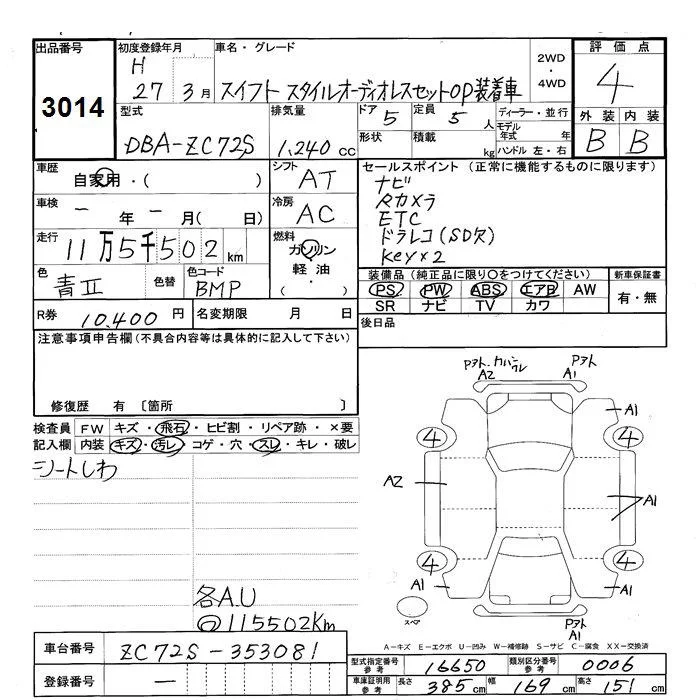 出品番号 3014
初度登録年月 H 27 3月
車名・グレード スイフト スタイルオーディオレスセットOP装着車
2WD ・ 4WD
評価点 4
外装 内装
B B
型式 DBA-ZC72S
排気量 1,240 cc
ドア 5
定員 5 人
形状
積載 kg
ディーラー・並行
モデル年式 年
ハンドル 左・右
車歴 自家用・( )
シフト AT
車検 - 年 - 月( 日)
冷房 AC
走行 11万5千502 km
燃料 ガソリン 軽油・ ( )
色 青II 色替
色コード BMP
R券 10,400 円
名変期限 月 日
セールスポイント (正常に機能するものに限ります)
ナビ
Rカメラ
ETC
ドラレコ(SD欠)
Key×2
装備品(純正品に限り○をつけてください)
PS PW ABS エアB AW
SR ナビ TV カワ
新車保証書
有・無
後日品
注意事項申告欄(不具合内容等は具体的に記入して下さい)
修復歴 有 〔箇所 〕
検査員記入欄
FW キズ・飛石・ヒビ割・リペア跡・×要
内装 キズ・汚レ・コゲ・穴・スレ・キレ・破レ
シートしわ
各A.U
◎115502Km
Pヲト.カハン.クレ
A2
Pヲト
A1
A1
4
4
A2
A1
4
4
A1
A1
スペア
Pヲト
A1
A-キズ E-エクボ U-凹み W-補修跡 S-サビ C-腐食 XX-交換済
車台番号 ZC72S-353081
登録番号 -
型式指定番号参考 16650
類別区分番号参考 0006
車庫証明用参考 長さ 385 cm 幅 169 cm 高さ 151 cm